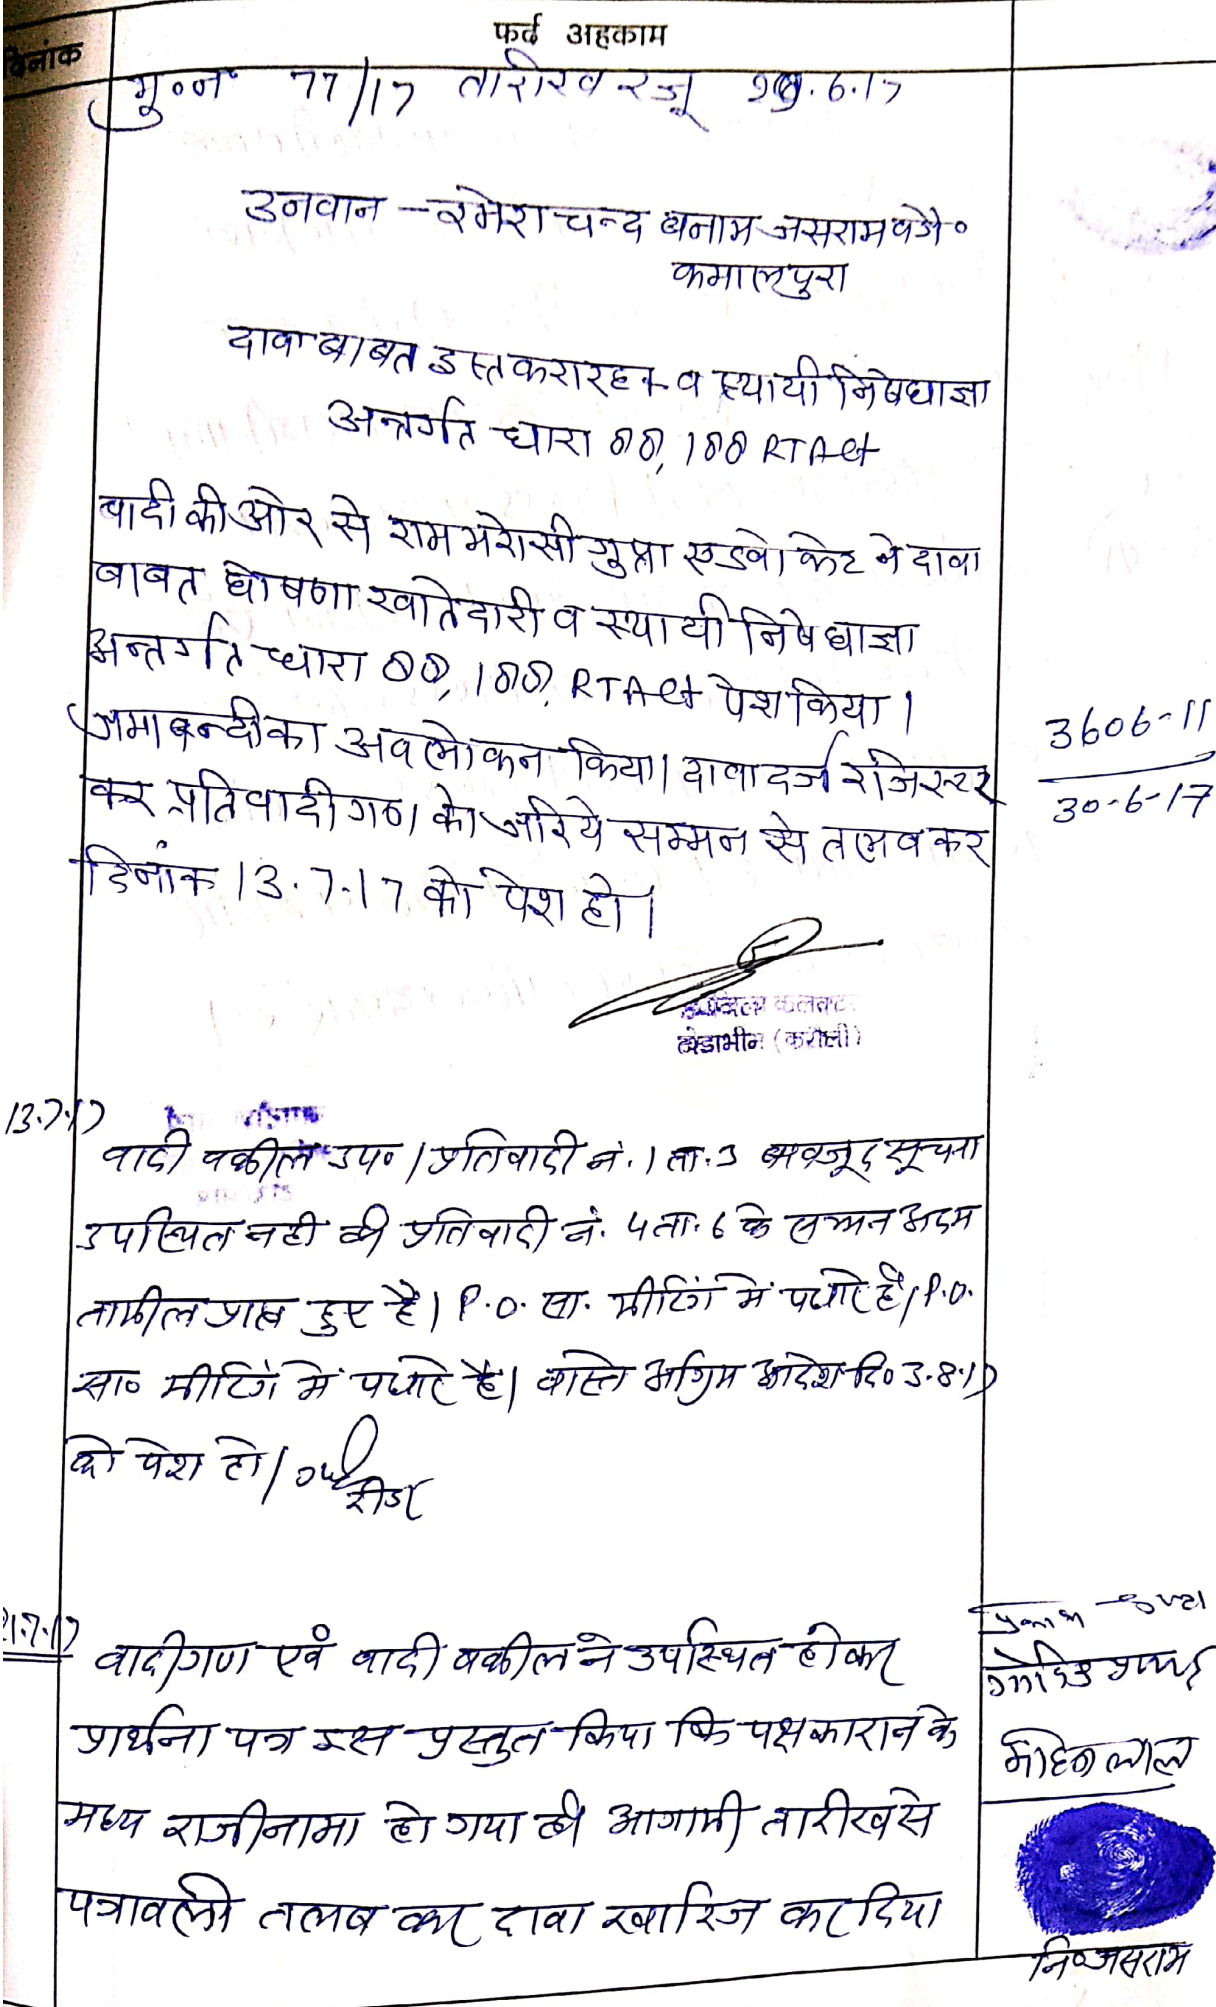 फर्द अहकाम
दिनांक
मु०नं० 77/17 तारीख रजू .6.17
उनवान - रमेश चन्द बनाम जसराम वगै०
कमालपुरा
दावा बाबत इस्तकरारहक व स्थायी निषेधाज्ञा
अन्तर्गत धारा 88, 188 RTAct
वादी की ओर से राम भरोसी गुप्ता एडवोकेट ने दावा
बाबत घोषणा खातेदारी व स्थायी निषेधाज्ञा
अन्तर्गत धारा 88, 188, RTAct पेश किया।
जमाबन्दी का अवलोकन किया। दावा दर्ज रजिस्टर
कर प्रतिवादीगण को जरिये सम्मन से तलब कर
दिनांक 13.7.17 को पेश हो।
3606-11
30-6-17
कलक्टर
टोडाभीम (करौली)
13.7.17
वादी वकील उप०। प्रतिवादी नं. 1 ता. 3 बावजूद सूचना
उपस्थित नही की प्रतिवादी नं. 4 ता. 6 के सम्मन अदम
तामील प्राप्त हुए है। P.O. सा. मीटिंग में पधारे है। P.O.
सा० मीटिंग में पधारे है। वास्ते अग्रिम आदेश दि० 3.8.17
को पेश हो।
रीडर
21.7.17
वादीगण एवं वादी वकील ने उपस्थित होकर
प्रार्थना पत्र इस प्रस्तुत किया कि पक्षकारान के
मध्य राजीनामा हो गया है आगामी तारीख से
पत्रावली तलब कर दावा खारिज कर दिया
मोहन लाल
नि० जसराम